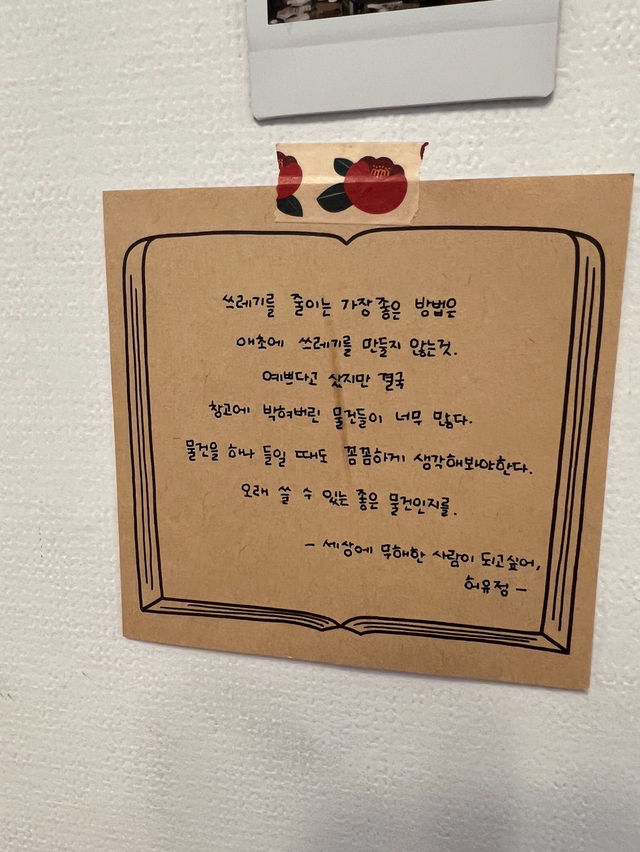 쓰레기를 줄이는 가장 좋은 방법은
애초에 쓰레기를 만들지 않는것.
예쁘다고 샀지만 결국
창고에 박혀버린 물건들이 너무 많다.
물건을 하나 들일 때도 꼼꼼하게 생각해봐야한다.
오래 쓸 수 있는 좋은 물건인지를.
- 세상에 무해한 사람이 되고싶어,
허유정 -